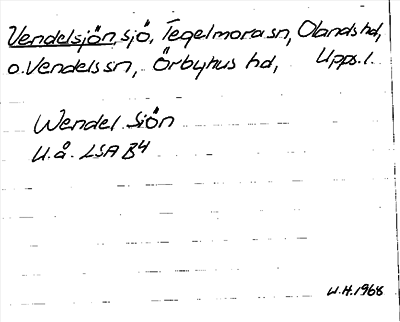 Vendelsjön, sjö, Tegelmora sn, Olands hd,
o. Vendels sn, Örbyhus hd, Upps. l.
Wendel Siön
U.å. LSA B4
U.H. 1968